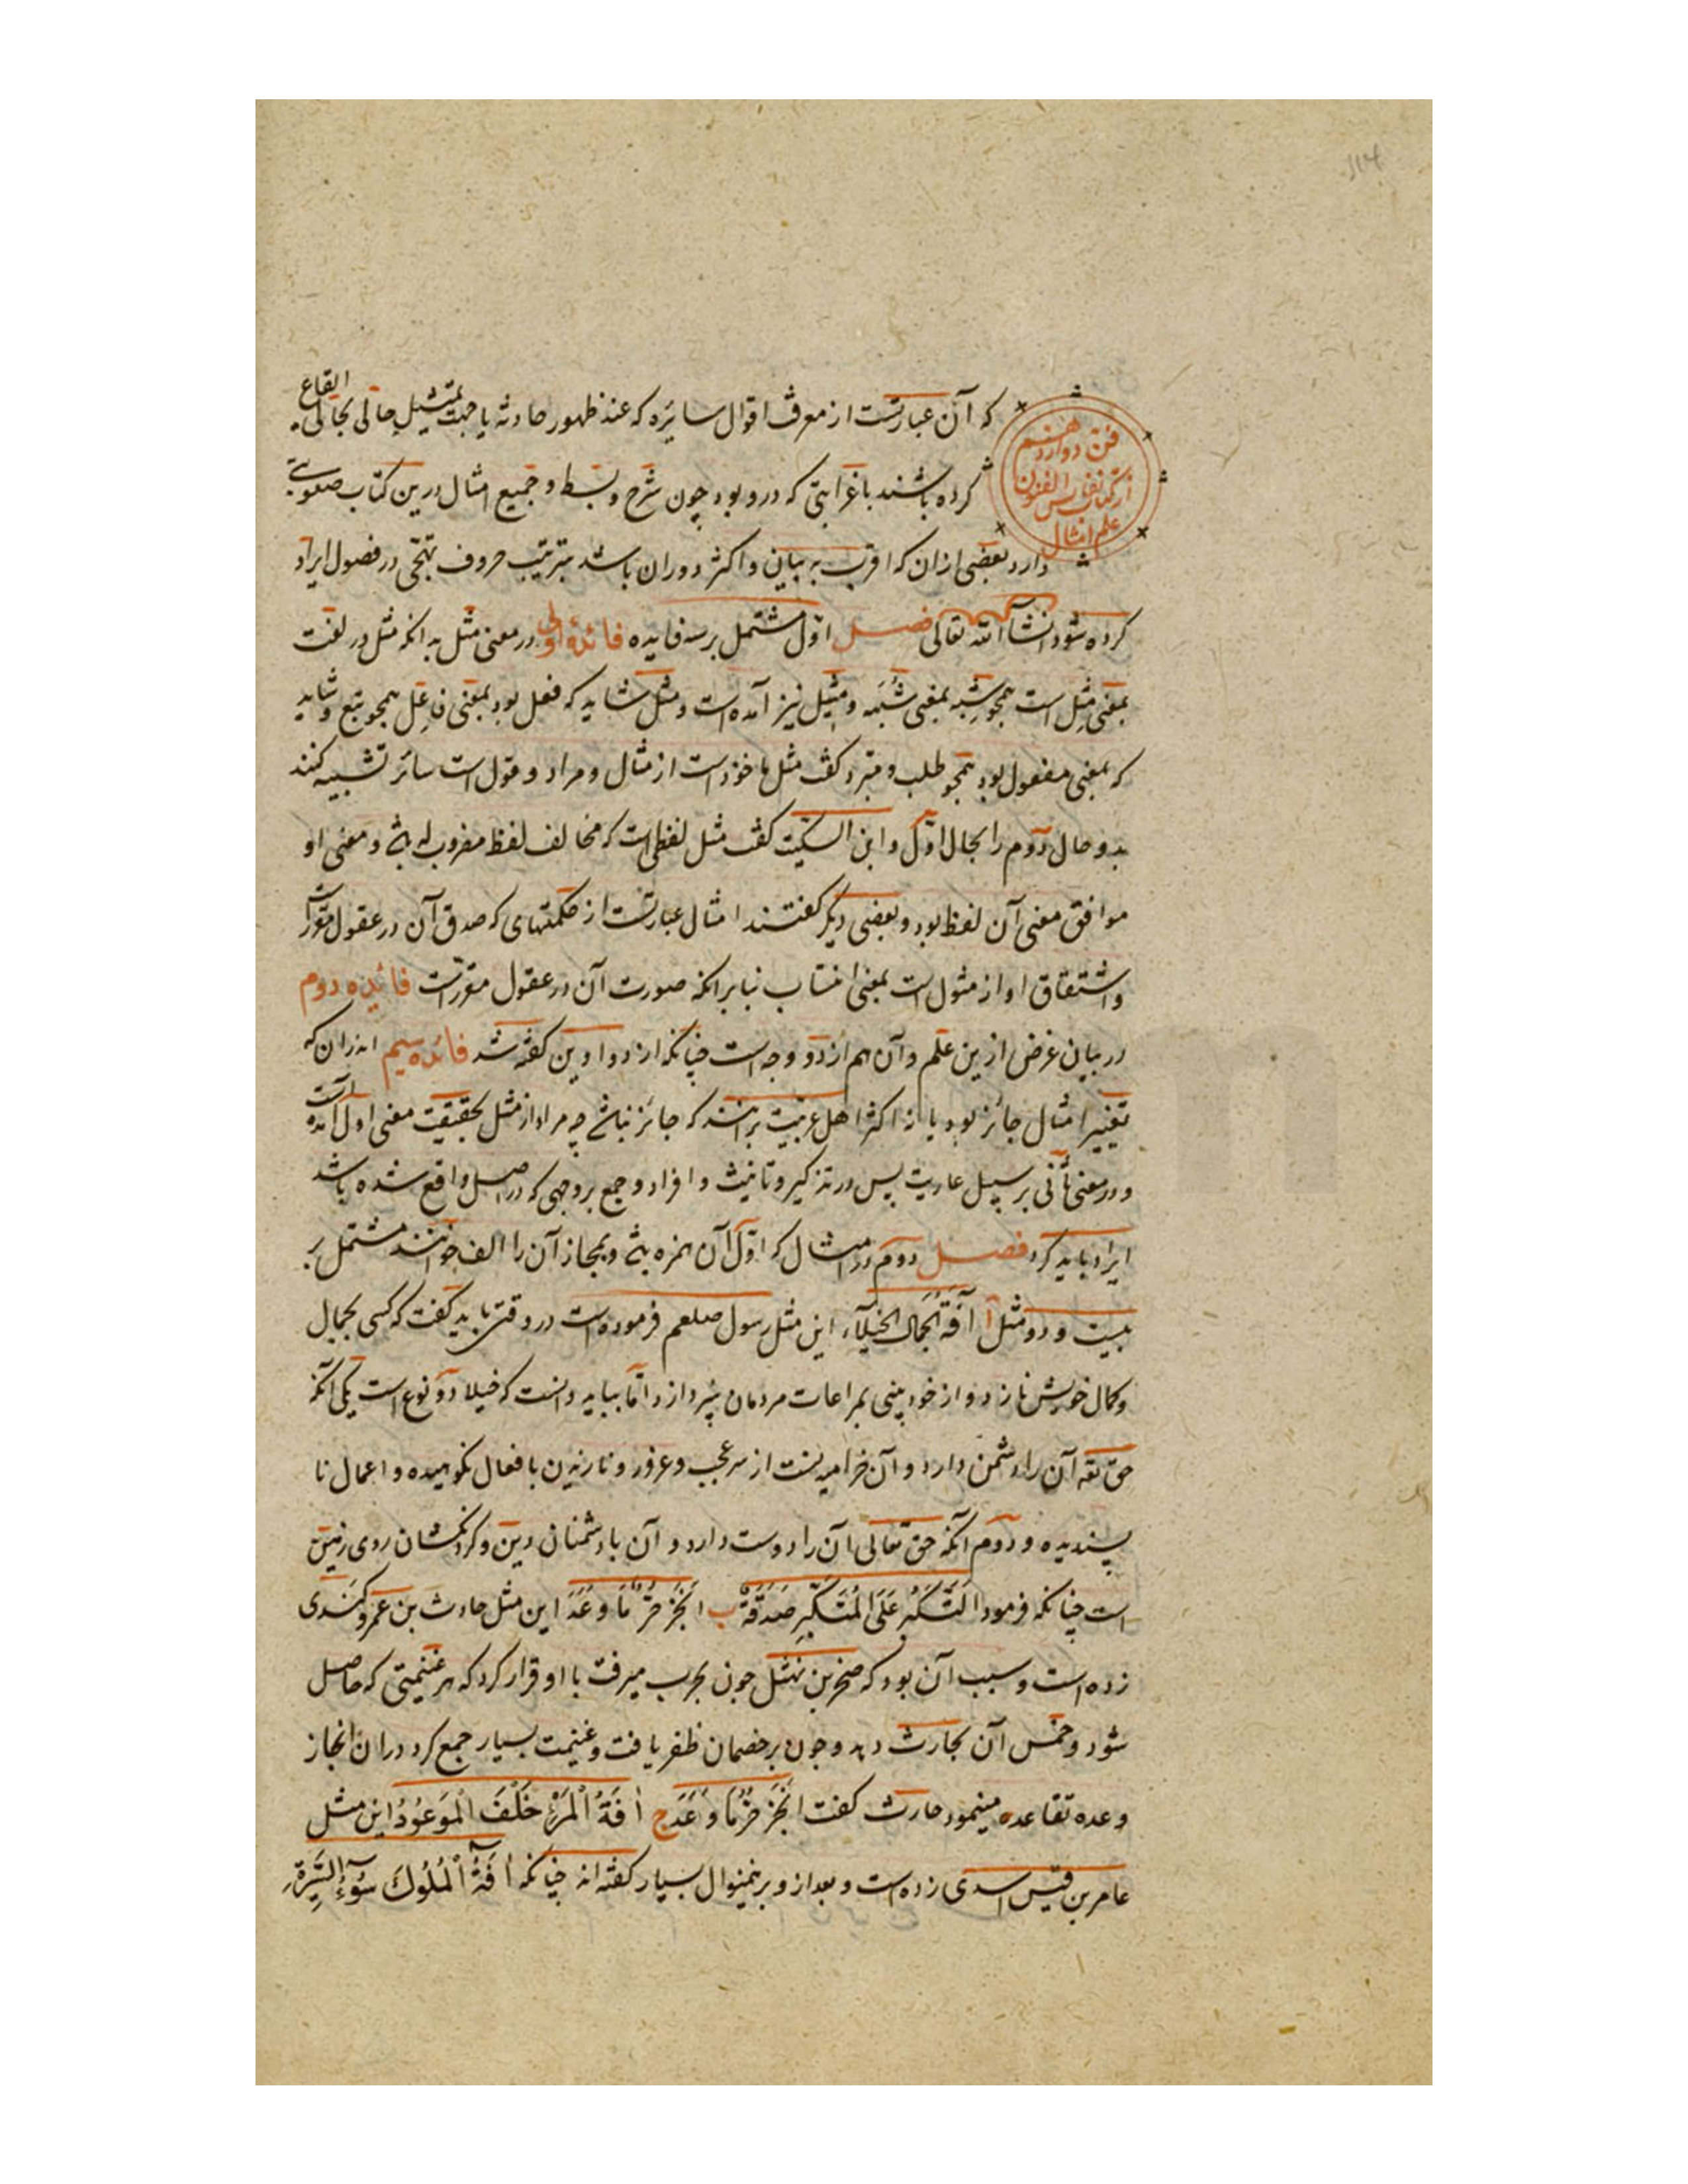 ۱۱۴
فن دوازدهم
از کتاب نفایس الفنون
علم امثال
که آن عبارتست از معرفت اقوال سایره که عند ظهور حادثه یا جهت تمثیل حالی بحالی ایقاع
کرده باشند با غرابتی که درو بود چون شرح و بسط و جمیع امثال درین کتاب صعوبتی
دارد بعضی از ان که اقرب به بیان و اکثر دوران باشد بترتیب حروف تهجی در فصول ایراد
کرده شود انشاء الله تعالی فصل اوّل مشتمل بر سه فایده فائدهٔ اولی در معنی مثل بدانکه مثل در لغت
بمعنی مِثل است همچو شِبه بمعنی شَبَه و مثیل نیز آمده است و مثل شاید که فعل بود بمعنی فاعل همچو تبع و شاید
که بمعنی مفعول بود همچو طلب و مبرد گفت مثل ماخوذ است از مثال و مراد و قول است سائر تشبیه کنند
بدو حال دوم را بحال اوّل و ابن السکیت گفت مثل لفظی است که مخالف لفظ مضروب له باشد و معنی او
موافق معنی آن لفظ بود و بعضی دیگر گفتند امثال عبارتست از حکمتهای که صدق آن در عقول متوراست
و اشتقاق او از مثول است بمعنی انتصاب بنابرانکه صورت آن در عقول مقررست فائده دوم
در بیان غرض ازین علم و آن هم از دو وجه است چنانکه از دواوین گفته شد فائده سیم اندران که
تغییر امثال جائز بود یا نه اکثر اهل عربیت برانند که جائز نباشد چه مراد از مثل بحقیقت معنی اول آمده است
و در معنی ثانی بر سبیل عاریت پس در تذکیر و تانیث و افراد و جمع بر وجهی که در اصل واقع شده باشد
ایراد باید کرد فصل دوم در امثال که اوّل آن همزه باشد و بمجاز آن را الف خوانند مشتمل بر
بیست و دو مثل آ آفَةُ الجَمَال الخیلآء این مثل رسول صلعم فرموده است در وقتی باید گفت که کسی بجمال
و کمال خویش نازد و از خودبینی بمراعات مردمان نپردازد امّا بباید دانست که خیلا دو نوع است یکی آنکه
حق تعه آن را دشمن دارد و آن خرامیدنست از سر عجب و غرور و نازیدن بافعال نکوهیده و اعمال نا
پسندیده و دوم آنکه حق تعالی آن را دوست دارد و آن با دشمنان دین و گردنکشان روی زمین
است چنانکه فرمود التَّکَبُّر عَلَی المُتَکَبِّرِ صَدَقَةٌ ب انجَزَ حُرٌّ مَا وَعَدَ این مثل حارث بن عمرو کندی
زده است و سبب آن بود که صخر بن نهشل چون بحرب میرفت با او قرار کرد که هر غنیمتی که حاصل
شود و خمس آن بحارث دهد و چون بر خصمان ظفر یافت و غنیمت بسیار جمع کرد در ان انجاز
وعده تقاعده مینمود حارث گفت انجَزَ حُرٌّ مَا وَعَدَ ج اٰفَةُ الْمَرْءِ خَلْفَ الْمَوعُودُ این مثل
عامر بن قیس اسدی زده است و بعد از و برینمنوال بسیار گفته اند چنانکه اٰفَةُ الْمُلُوكَ سُوْءُ السِّیْرَةِ